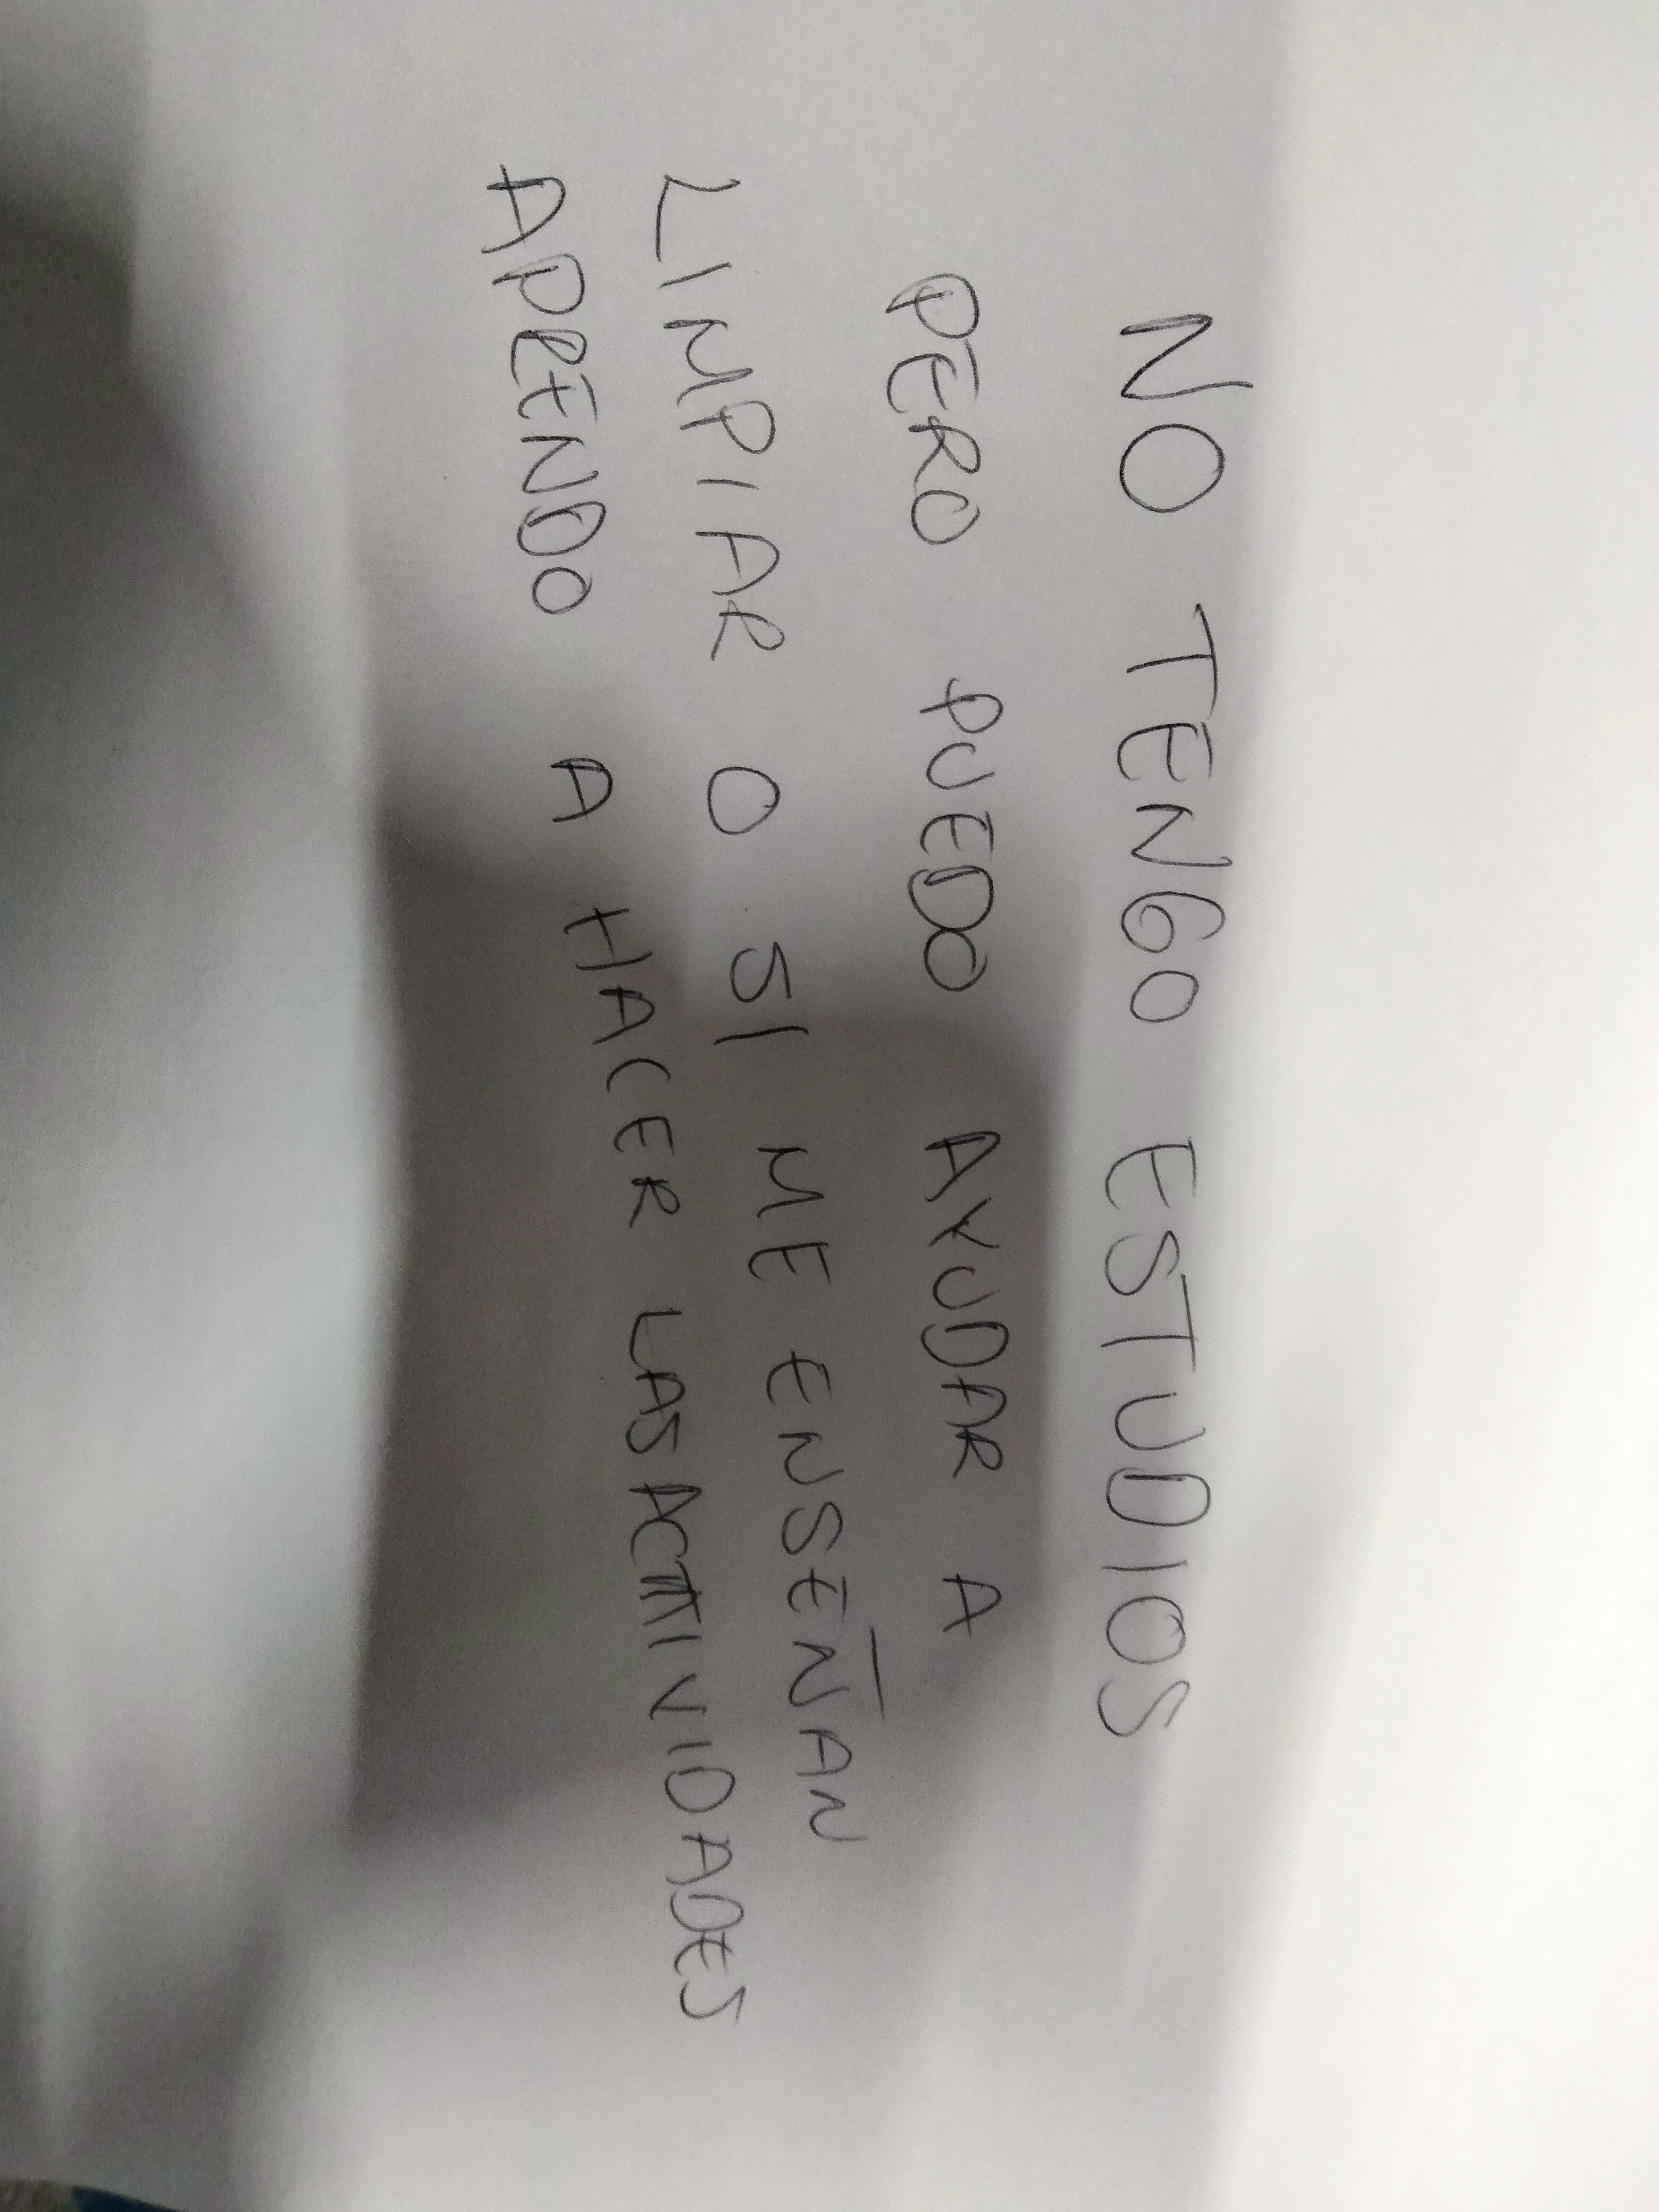 NO TENGO ESTUDIOS
PERO PUEDO AYUDAR A
LIMPIAR O SI ME ENSEÑAN
APRENDO A HACER LAS ACTIVIDADES